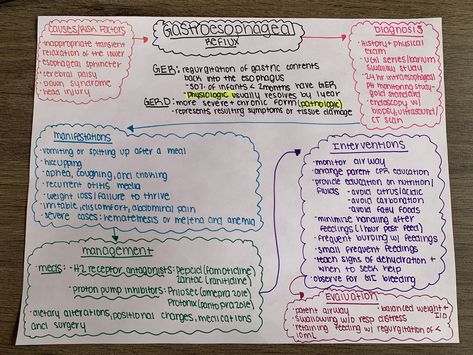 Gastroesophageal
REFLUX
GER: regurgitation of gastric contents
back into the esophagus
·50% of infants < 2 months have GER
·Physiologic usually resolves by 1 year
GERD: more severe + chronic form (pathologic)
·represents resulting symptoms or tissue damage
CAUSES/RISK FACTORS
·inappropriate transient
relaxation of the lower
esophageal sphincter
·cerebral palsy
·Down syndrome
·head injury
Diagnosis
·History + physical
exam
·UGI series/barium
swallow study
·24 hr intraesophageal
pH monitoring study-
gold standard
·endoscopy w/
biopsy, ultrasound
CT scan
Manifestations
·vomiting or spitting up after a meal
·hiccupping
·apnea, coughing, and choking
·recurrent otitis media
·weight loss/failure to thrive
·irritable, discomfort, abdominal pain
·severe cases: hematemesis or melena and anemia
management
·meds: ·H2 receptor antagonists: Pepcid (famotidine)
Zantac (ranitidine)
·proton pump inhibitors: Prilosec (omeprazole)
Protonix (pantoprazole)
·dietary alterations, positional changes, medications
and surgery
Interventions
·monitor airway
·arrange parent CPR education
·provide education on nutrition/
fluids ·avoid citrus/acidic
·avoid carbonation
·avoid fatty foods
·minimize handling after
feedings (1 hour past feed)
·frequent burping w/ feedings
·small frequent feedings
·teach signs of dehydration +
when to seek help
·observe for GI bleeding
EVALUATION
·patent airway ·balanced weight +
I/O
·swallowing w/o resp distress
·retaining feeding w/ regurgitation of <
10mL